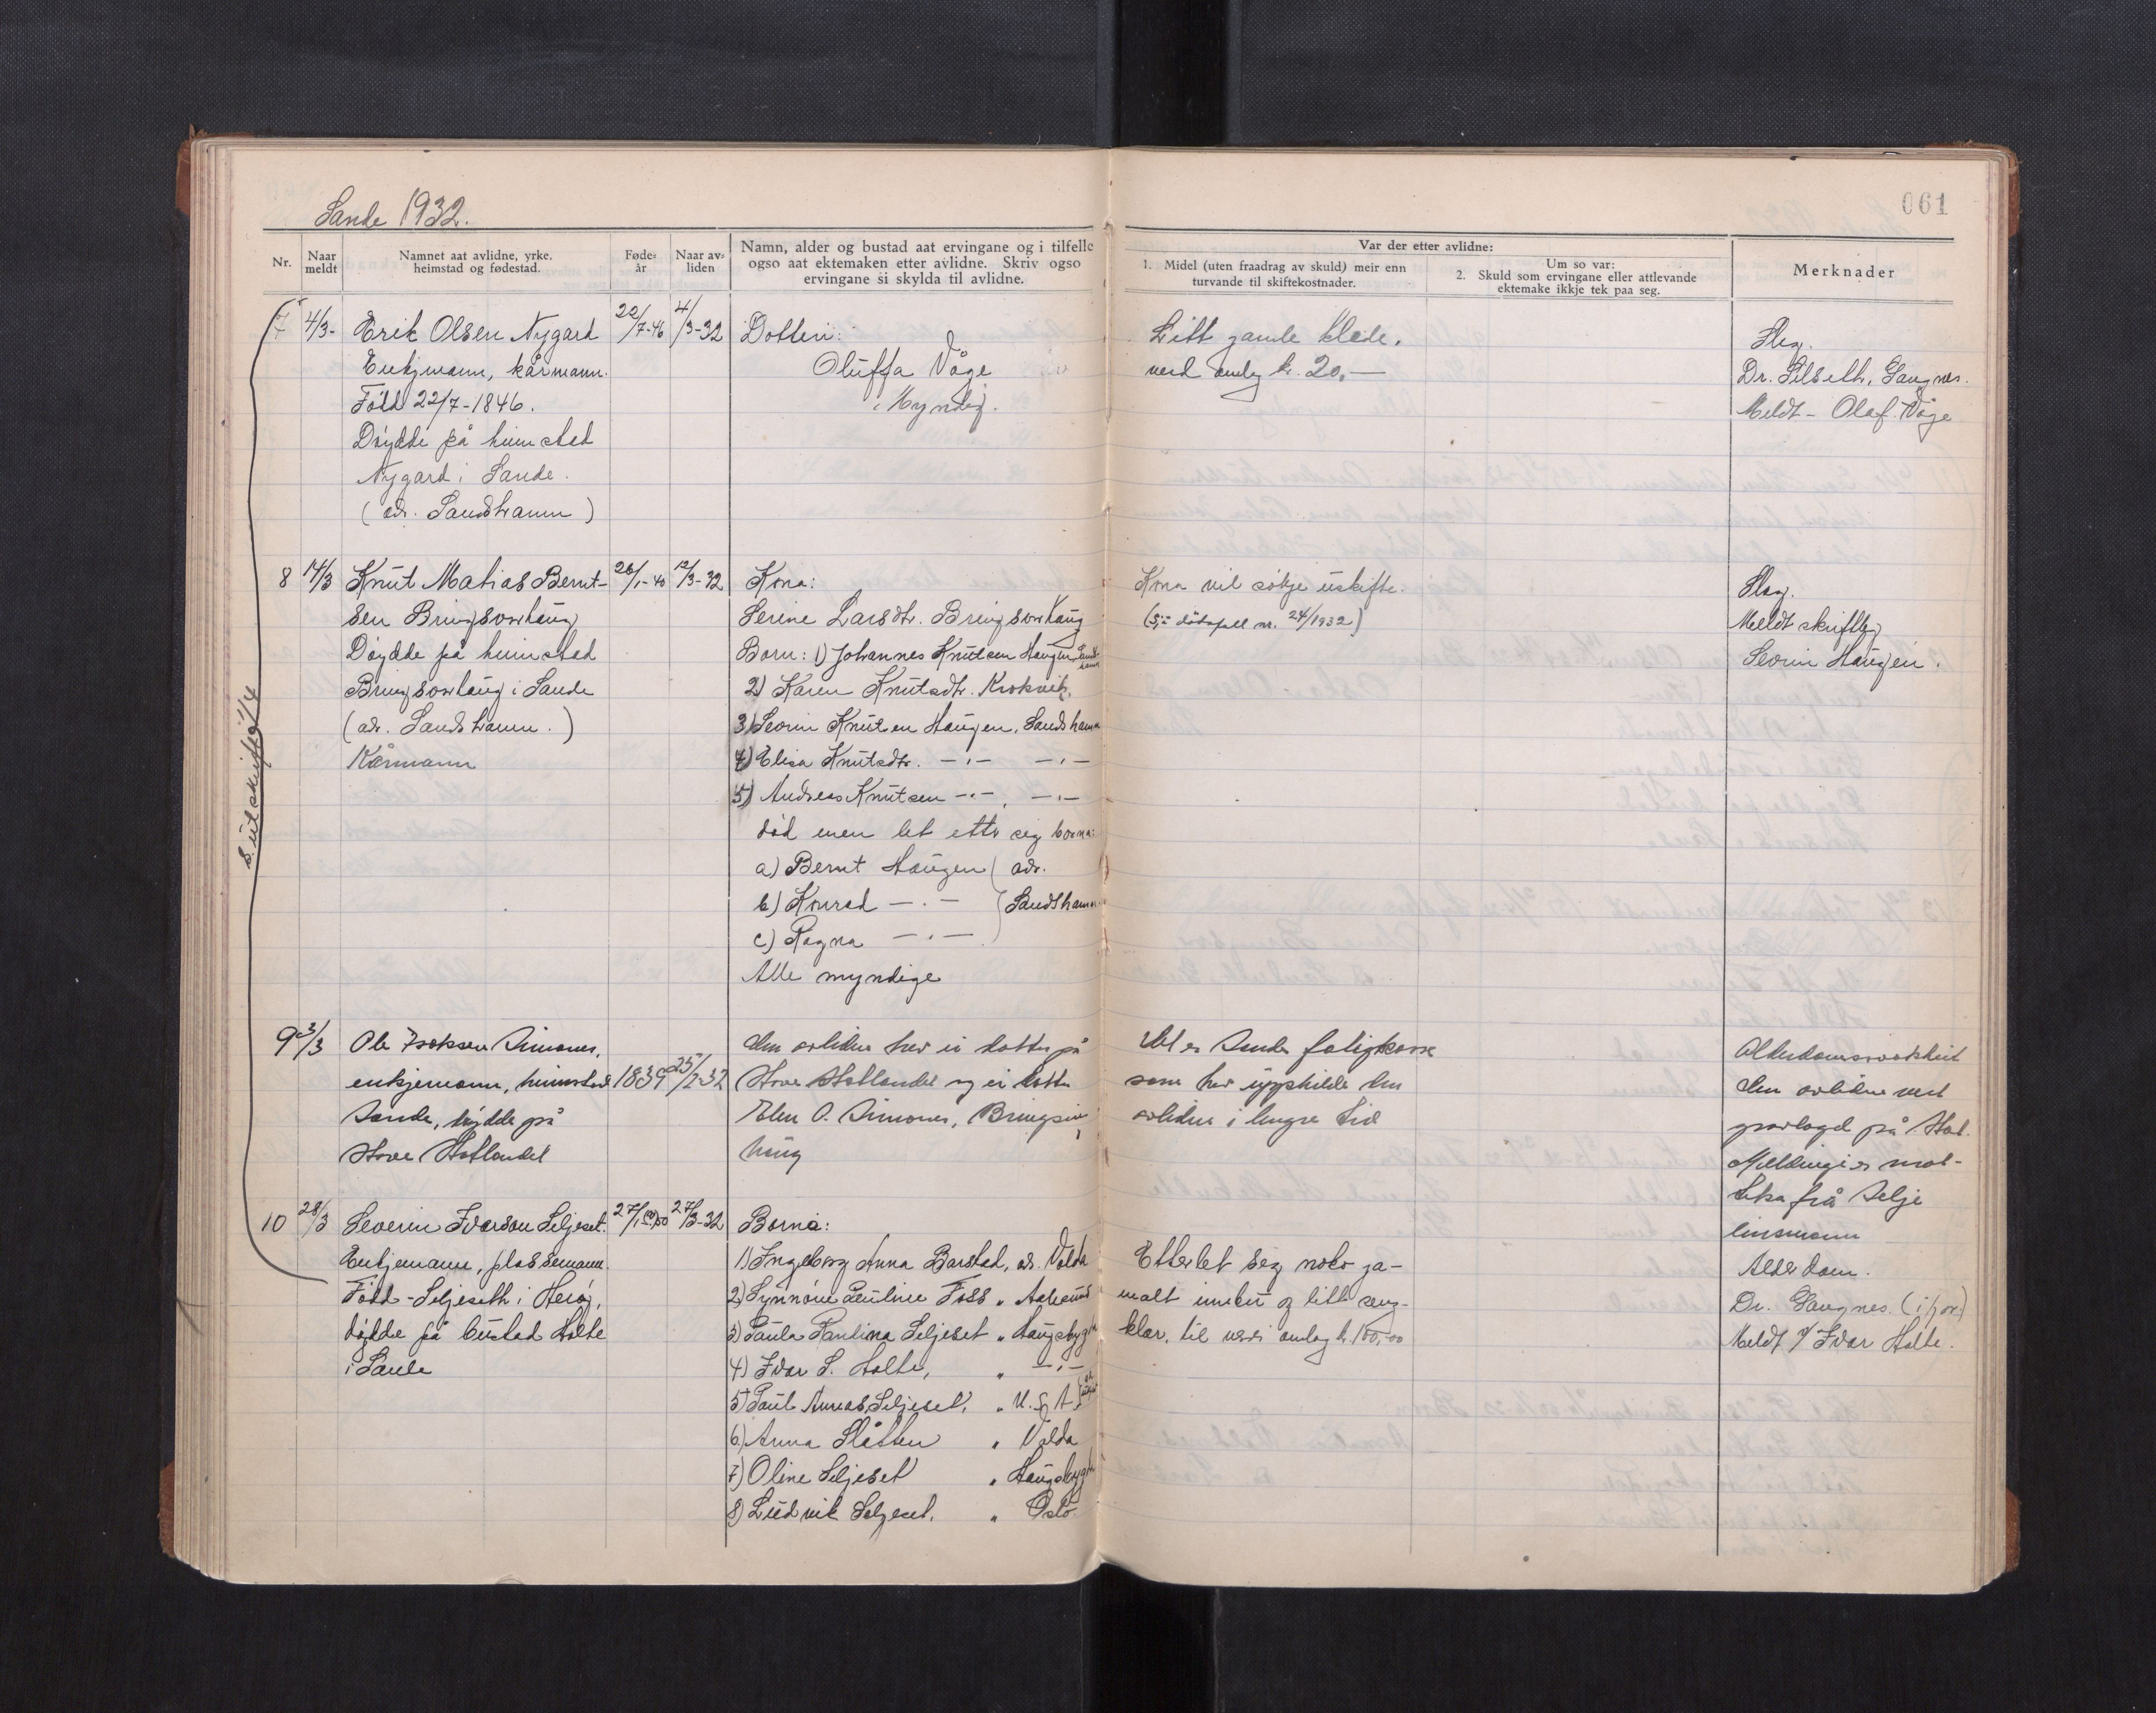 Sande 1932.
061
Nr.
Naar meldt
Namnet aat avlidne, yrke, heimstad og fødestad.
Føde-år
Naar av-liden
Namn, alder og bustad aat ervingane og i tilfelle ogso aat ektemaken etter avlidne. Skriv ogso ervingane si skylda til avlidne.
Var der etter avlidne:
1. Midel (uten fraadrag av skuld) meir enn turvande til skiftekostnader.
Um so var:
2. Skuld som ervingane eller attlevande ektemake ikkje tek paa seg.
Merknader
7 4/3- Erik Olsen Nygard 22/7-46 4/3-32
Enkjmann, kårmann.
Född 22/7-1846.
Döydde på heimstad
Nygard i Sande.
(adr. Sandshamn)
Dotteri:
Oluffa Våge
Myndig.
Litt gamle klæde.
verd omlag kr. 20,-
Slag.
Dr. Silseth, Gangnes.
Meldt - Olaf Våge
8 14/3 Knut Matias Bernt- 26/1-40 12/3-32
sen Bringsvorhaug
Döydde på heimstad
Bringsvorhaug i Sande
(adr. Sandshamn.)
Kårmann
Kona:
Serine Larsdtr. Bringsvorhaug
Born: 1) Johannes Knutsen Haugen, Sandshamn
2) Karen Knutsdtr. Krokvik,
3) Sevrin Knutsen Haugen, Sandshamn
4) Elisa Knutsdtr. -"- -"-
5) Andreas Knutsen -"-, -"-
död men let etter seg borna:
a) Bernt Haugen ( adr.
b) Konrad -"- ( Sandshamn
c) Ragna -"-
Alle myndige
Kona vil søkje uskifte.
(Sjå dödsfall nr. 24/1932)
Slag.
Meldt skriftleg
Sevrin Haugen.
S. utskrift 9/4
9 3/3 Ole Isaksen Simones,
enkjemann, heimstad 1839 25/2-32
Sande, döydde på
Hove Statlandet
den avlidne hev ei dotter på
Hove Statlandet og ei dotter
Elen O. Simones, Bringsvor
haug
Det er Sande fatigkasse
som hev uppheldt den
avlidne i lengre tid
Alderdomssvakheit
den avlidne vert
gravlagd på Stat.
Meldingi er mot-
teka frå Selje
lensmann
10 28/3 Severin Ivarson Seljeset. 27/3-32
Enkjemann, plassemann.
Född - Seljeseth i Herøy,
döydde på bustad Holte
i Sande
Borna:
1) Ingeborg Anna Barstad, adr. Volda
2) Synnöve Pauline Foss "
3) Paula Pandina Seljeset " Haugsbygda
4) Ivar S. Holte, " -"-
5) Paul Annias Seljeset, " U.S.A.
6) Anna Slåtten " Volda
7) Oline Seljeset " Haugsbygda
8) Ludvik Seljeset, " Oslo
Etterlet seg noko ga-
malt innbu og litt seng-
klær, til verdi omlag kr. 100,00
Alderdom.
Dr. Gangnes.
Meldt v/ Ivar Holte.